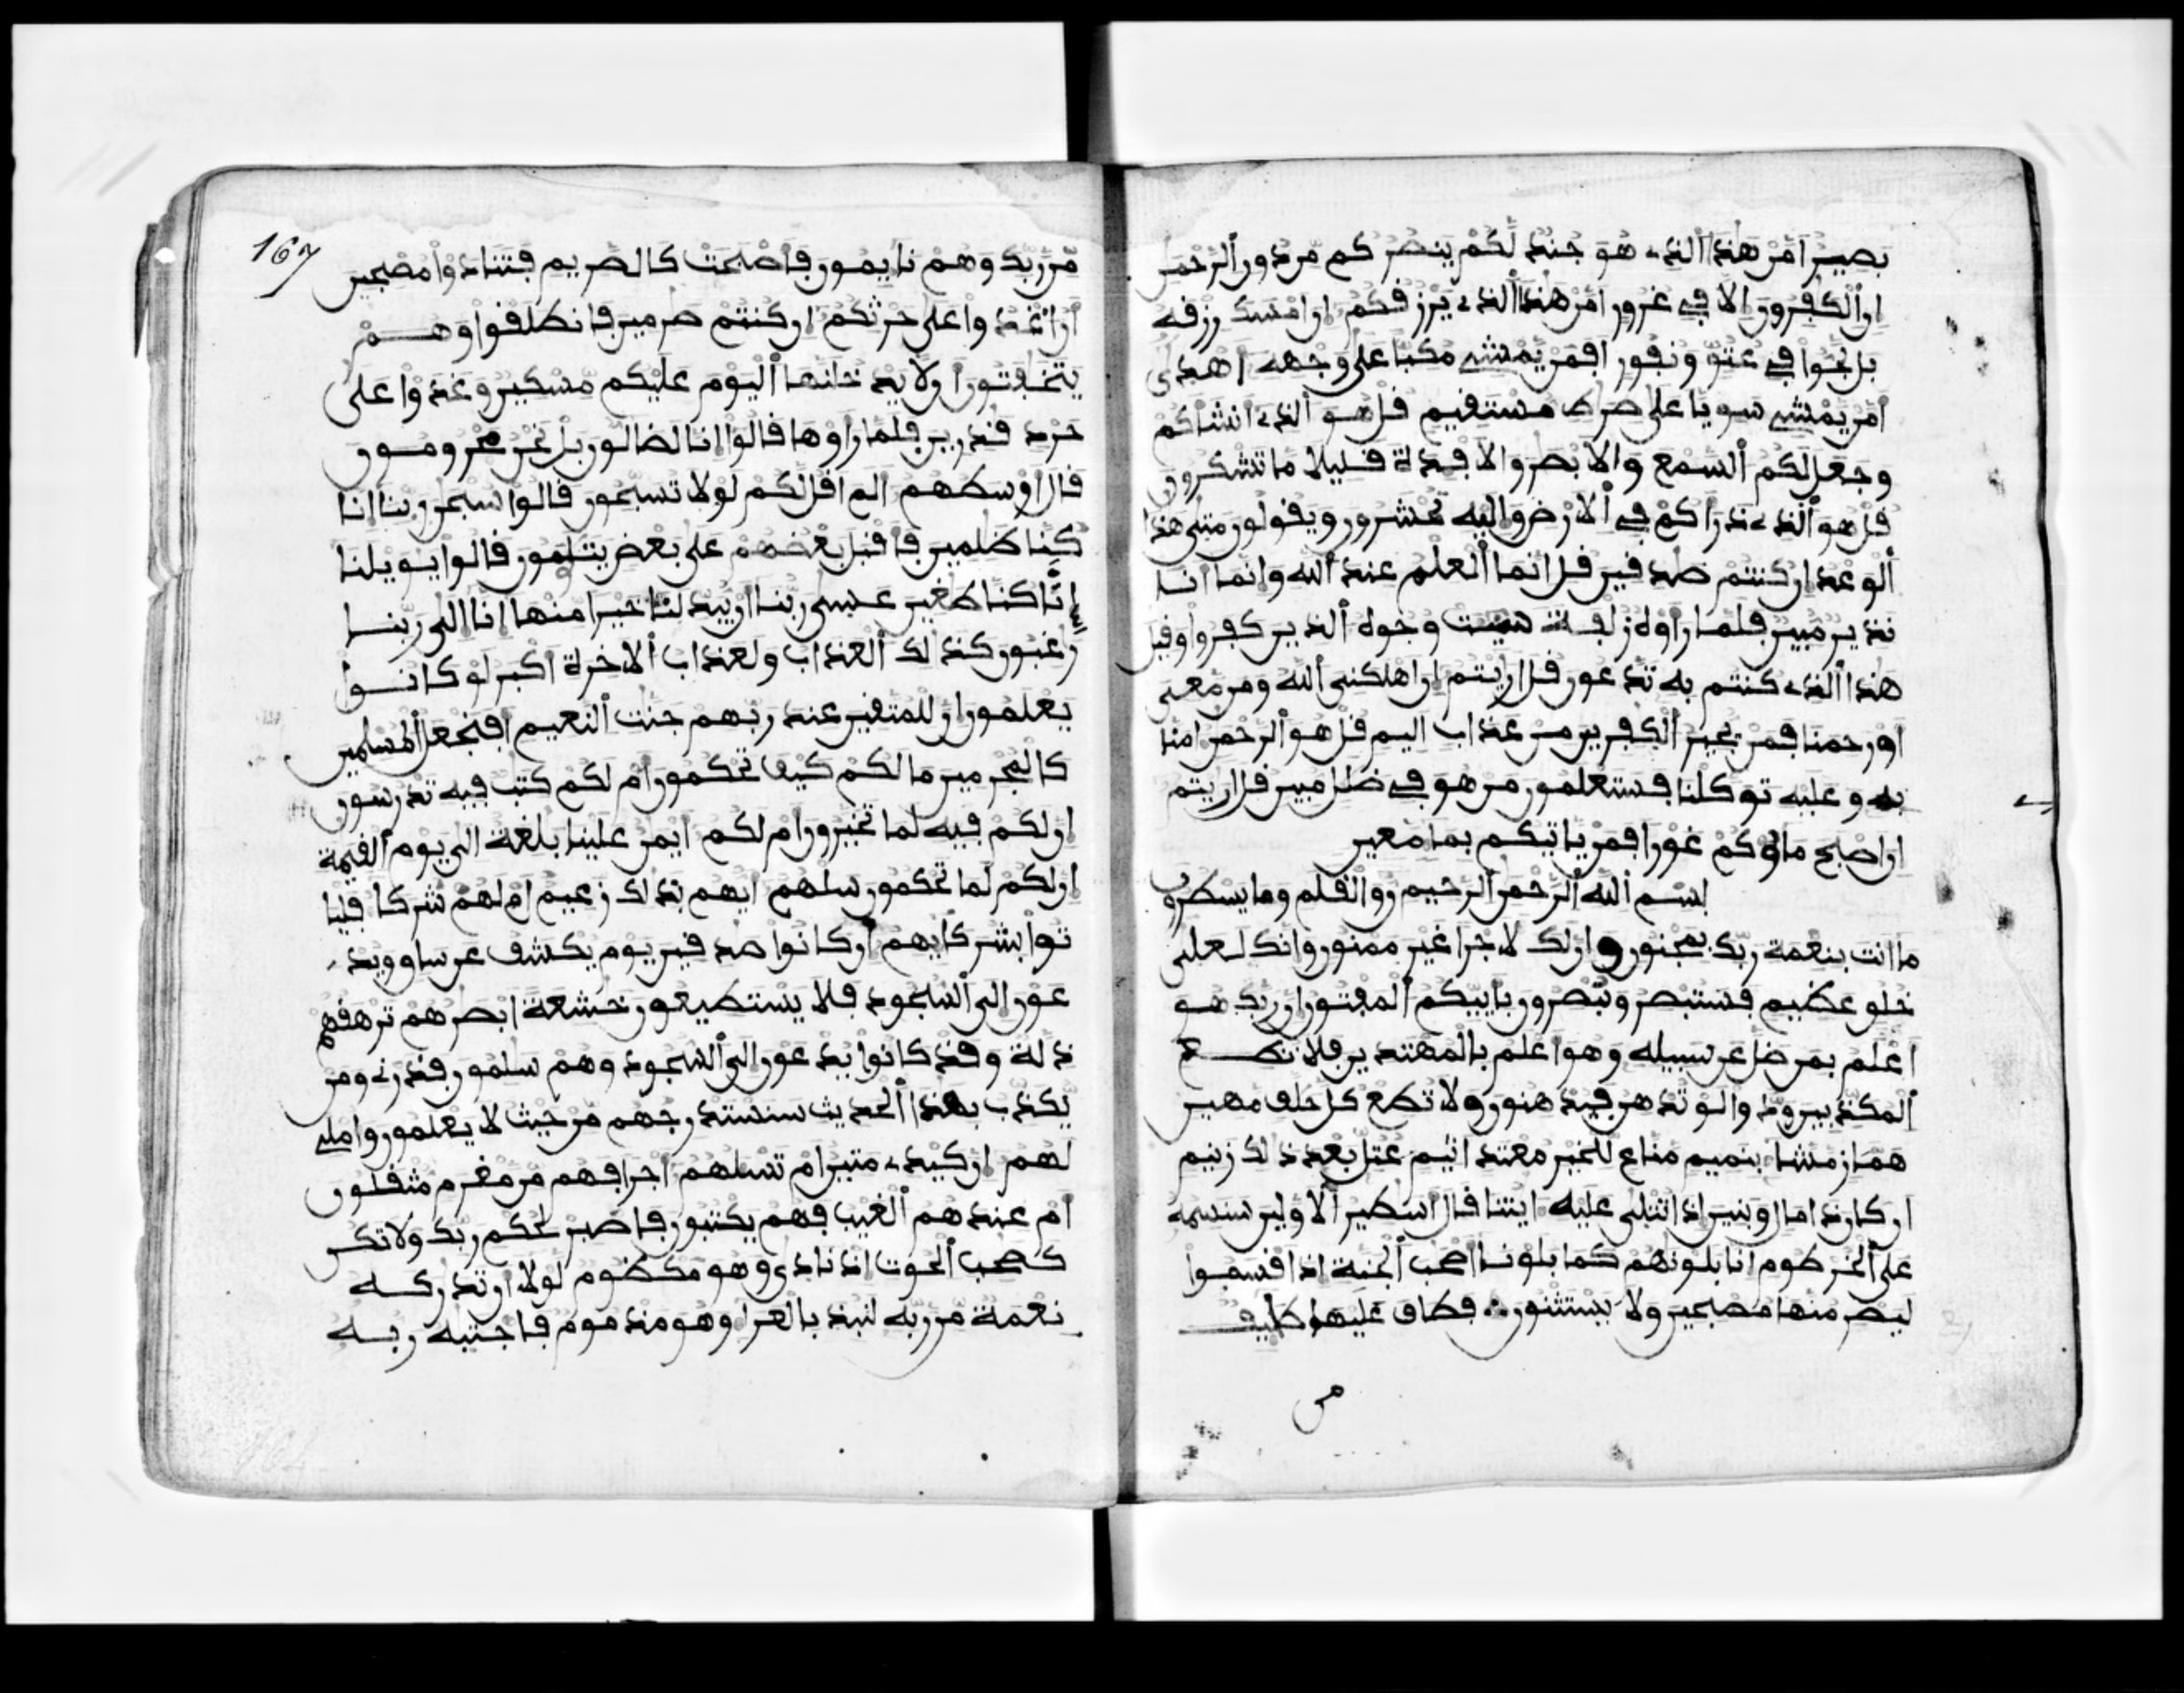 بصير امن هذا الذے هو جند لكم ينصركم من دون الرحمن
ان الكفرون الا في غرور امن هذا الذے يرزقكم ان امسك رزقه
بل لجوا في عتو ونفور افمن يمشے مكبا على وجهه اهدى
امن يمشے سويا على صرط مستقيم قل هو الذے انشاكم
وجعل لكم السمع والابصر والافدة قليلا ما تشكرون
قل هو الذے ذراكم في الارض واليه تحشرون ويقولون متى هذا
الوعد ان كنتم صدقين قل انما العلم عند الله وانما انا
نذير مبين فلما راوه زلفة سيت وجوه الذين كفروا وقيل
هذا الذے كنتم به تدعون قل اريتم ان اهلكنى الله ومن معى
او رحمنا فمن يجير الكفرين من عذاب اليم قل هو الرحمن امنا
به وعليه توكلنا فستعلمون من هو في ضلل مبين قل اريتم
ان اصبح ماوكم غورا فمن ياتيكم بما معين
بسم الله الرحمن الرحيم ن والقلم وما يسطرون
ما انت بنعمة ربك بمجنون وان لك لاجرا غير ممنون وانك لعلى
خلق عظيم فستبصر ويبصرون باييكم المفتون ان ربك هو
اعلم بمن ضل عن سبيله وهو اعلم بالمهتدين فلا تطع
المكذبين ودوا لو تدهن فيدهنون ولا تطع كل حلف مهين
هماز مشا بنميم مناع للخير معتد اثيم عتل بعد ذلك زنيم
ان كان ذا مال وبنين اذا تتلى عليه ايتنا قال اسطير الاولين سنسمه
على الخرطوم انا بلونهم كما بلونا اصحب الجنة اذ اقسموا
ليصرمنها مصبحين ولا يستثنون فطاف عليها طيف
من
167
من ربك وهم نايمون فاصبحت كالصريم فتنادوا مصبحين
ان اغدوا على حرثكم ان كنتم صرمين فانطلقوا وهم
يتخفتون ان لا يدخلنها اليوم عليكم مسكين وغدوا على
حرد قدرين فلما راوها قالوا انا لضالون بل نحن محرومون
قال اوسطهم الم اقل لكم لولا تسبحون قالوا سبحن ربنا انا
كنا ظلمين فاقبل بعضهم على بعض يتلومون قالوا يويلنا
انا كنا طغين عسى ربنا ان يبدلنا خيرا منها انا الى ربنا
رغبون كذلك العذاب ولعذاب الاخرة اكبر لو كانوا
يعلمون ان للمتقين عند ربهم جنت النعيم افنجعل المسلمين
كالمجرمين ما لكم كيف تحكمون ام لكم كتب فيه تدرسون
ان لكم فيه لما تخيرون ام لكم ايمن علينا بلغة الى يوم القيمة
ان لكم لما تحكمون سلهم ايهم بذلك زعيم ام لهم شركا فليا
توا بشركايهم ان كانوا صدقين يوم يكشف عن ساق ويد
عون الى السجود فلا يستطيعون خشعة ابصرهم ترهقهم
ذلة وقد كانوا يدعون الى السجود وهم سلمون فذرنے ومن
يكذب بهذا الحديث سنستدرجهم من حيث لا يعلمون واملے
لهم ان كيدے متين ام تسلهم اجرا فهم من مغرم مثقلون
ام عندهم الغيب فهم يكتبون فاصبر لحكم ربك ولا تكن
كصحب الحوت اذ نادى وهو مكظوم لولا ان تدركه
نعمة من ربه لنبذ بالعرا وهو مذموم فاجتبه ربه